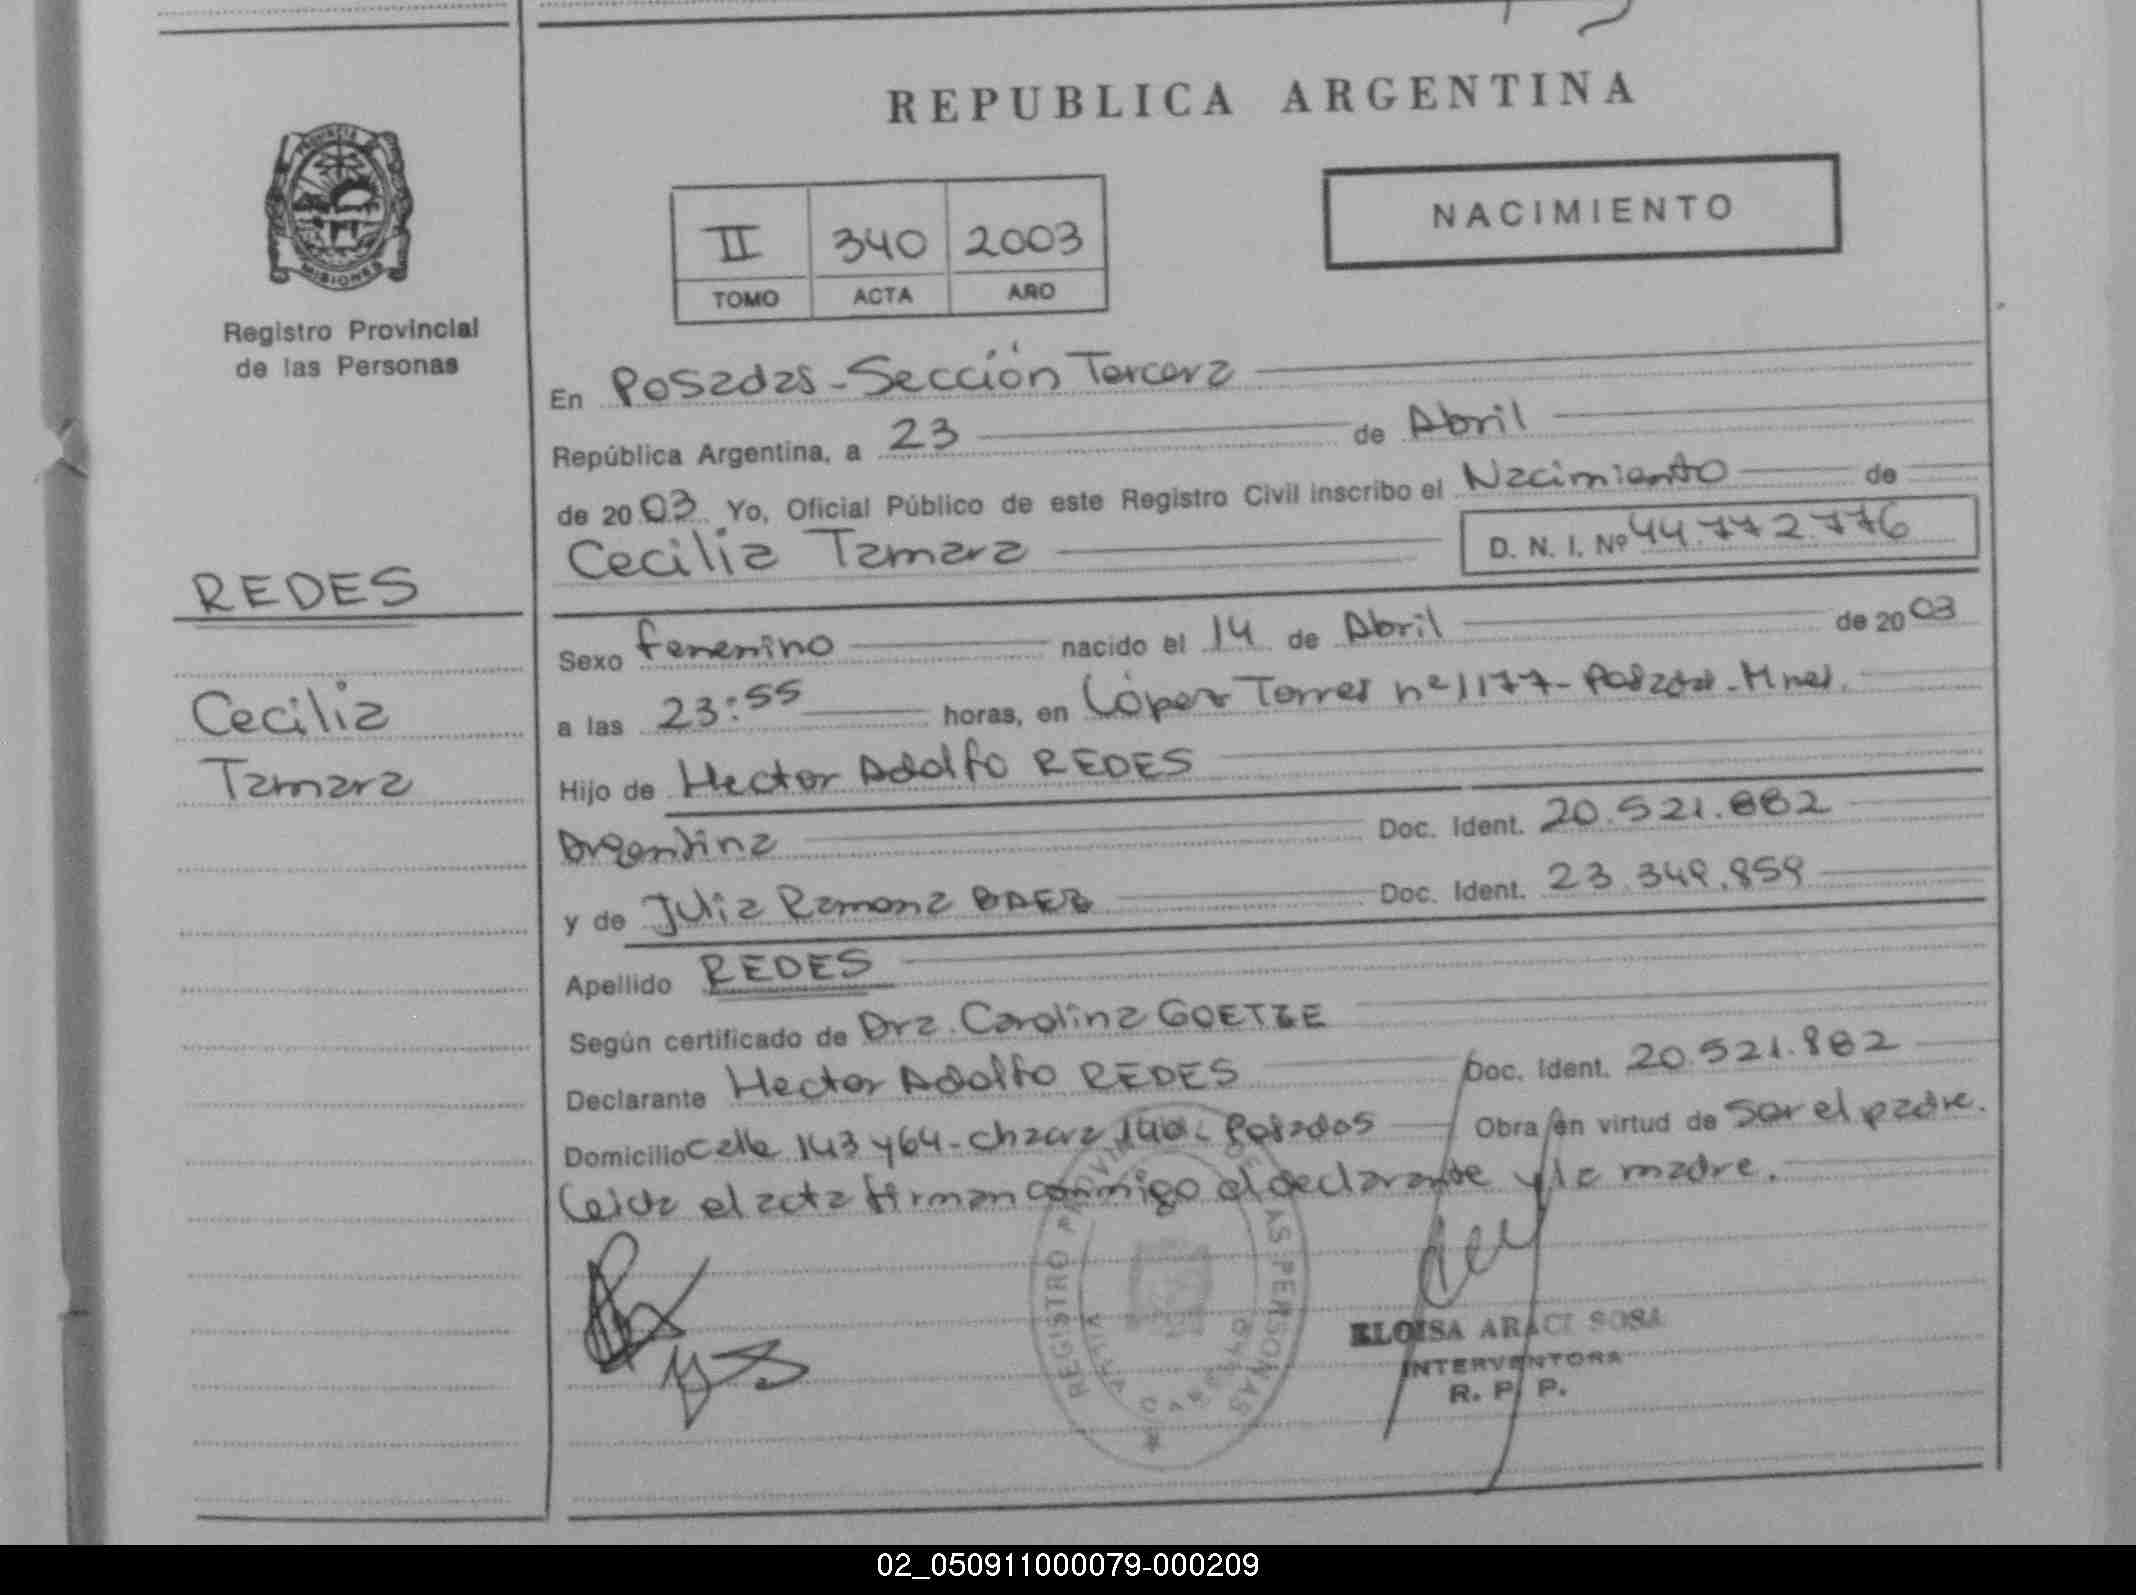 REPUBLICA ARGENTINA
PROVINCIA
MISIONES
Registro Provincial
de las Personas
II 340 2003
TOMO ACTA AÑO
NACIMIENTO
En Posadas-Sección Tercera
República Argentina, a 23 de Abril
de 2003 Yo, Oficial Público de este Registro Civil inscribo el Nacimiento de
Cecilia Tamara D. N. I. Nº 44.772.776
REDES
Cecilia
Tamara
Sexo femenino nacido el 14 de Abril de 2003
a las 23:55 horas, en López Torres nº 1177-Posadas-Mnes.
Hijo de Hector Adolfo REDES
Argentina Doc. Ident. 20.521.882
y de Julia Ramona Doc. Ident. 23.349.859
Apellido REDES
Según certificado de Dra. Carolina GOETZE
Declarante Hector Adolfo REDES Doc. Ident. 20.521.882
Domicilio calle 143 y 64-chacra Posadas Obra en virtud de Ser el padre.
Leida el acta firman conmigo el declarante y la madre.
REGISTRO PROVINCIAL DE LAS PERSONAS
ELOISA ARACI SOSA
INTERVENTORA
R. P. P.
02_050911000079-000209